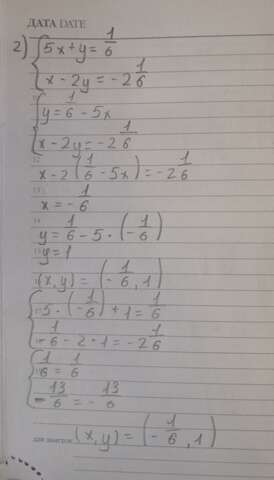 ДАТА DATE
2) { 5x + y = 1/6
x - 2y = -2 1/6
{ y = 1/6 - 5x
x - 2y = -2 1/6
x - 2 (1/6 - 5x) = -2 1/6
x = - 1/6
y = 1/6 - 5 · (- 1/6)
y = 1
(x, y) = (- 1/6, 1)
{ 5 · (- 1/6) + 1 = 1/6
- 1/6 - 2 · 1 = -2 1/6
{ 1/6 = 1/6
- 13/6 = - 13/6
для заметок (x, y) = (- 1/6, 1)